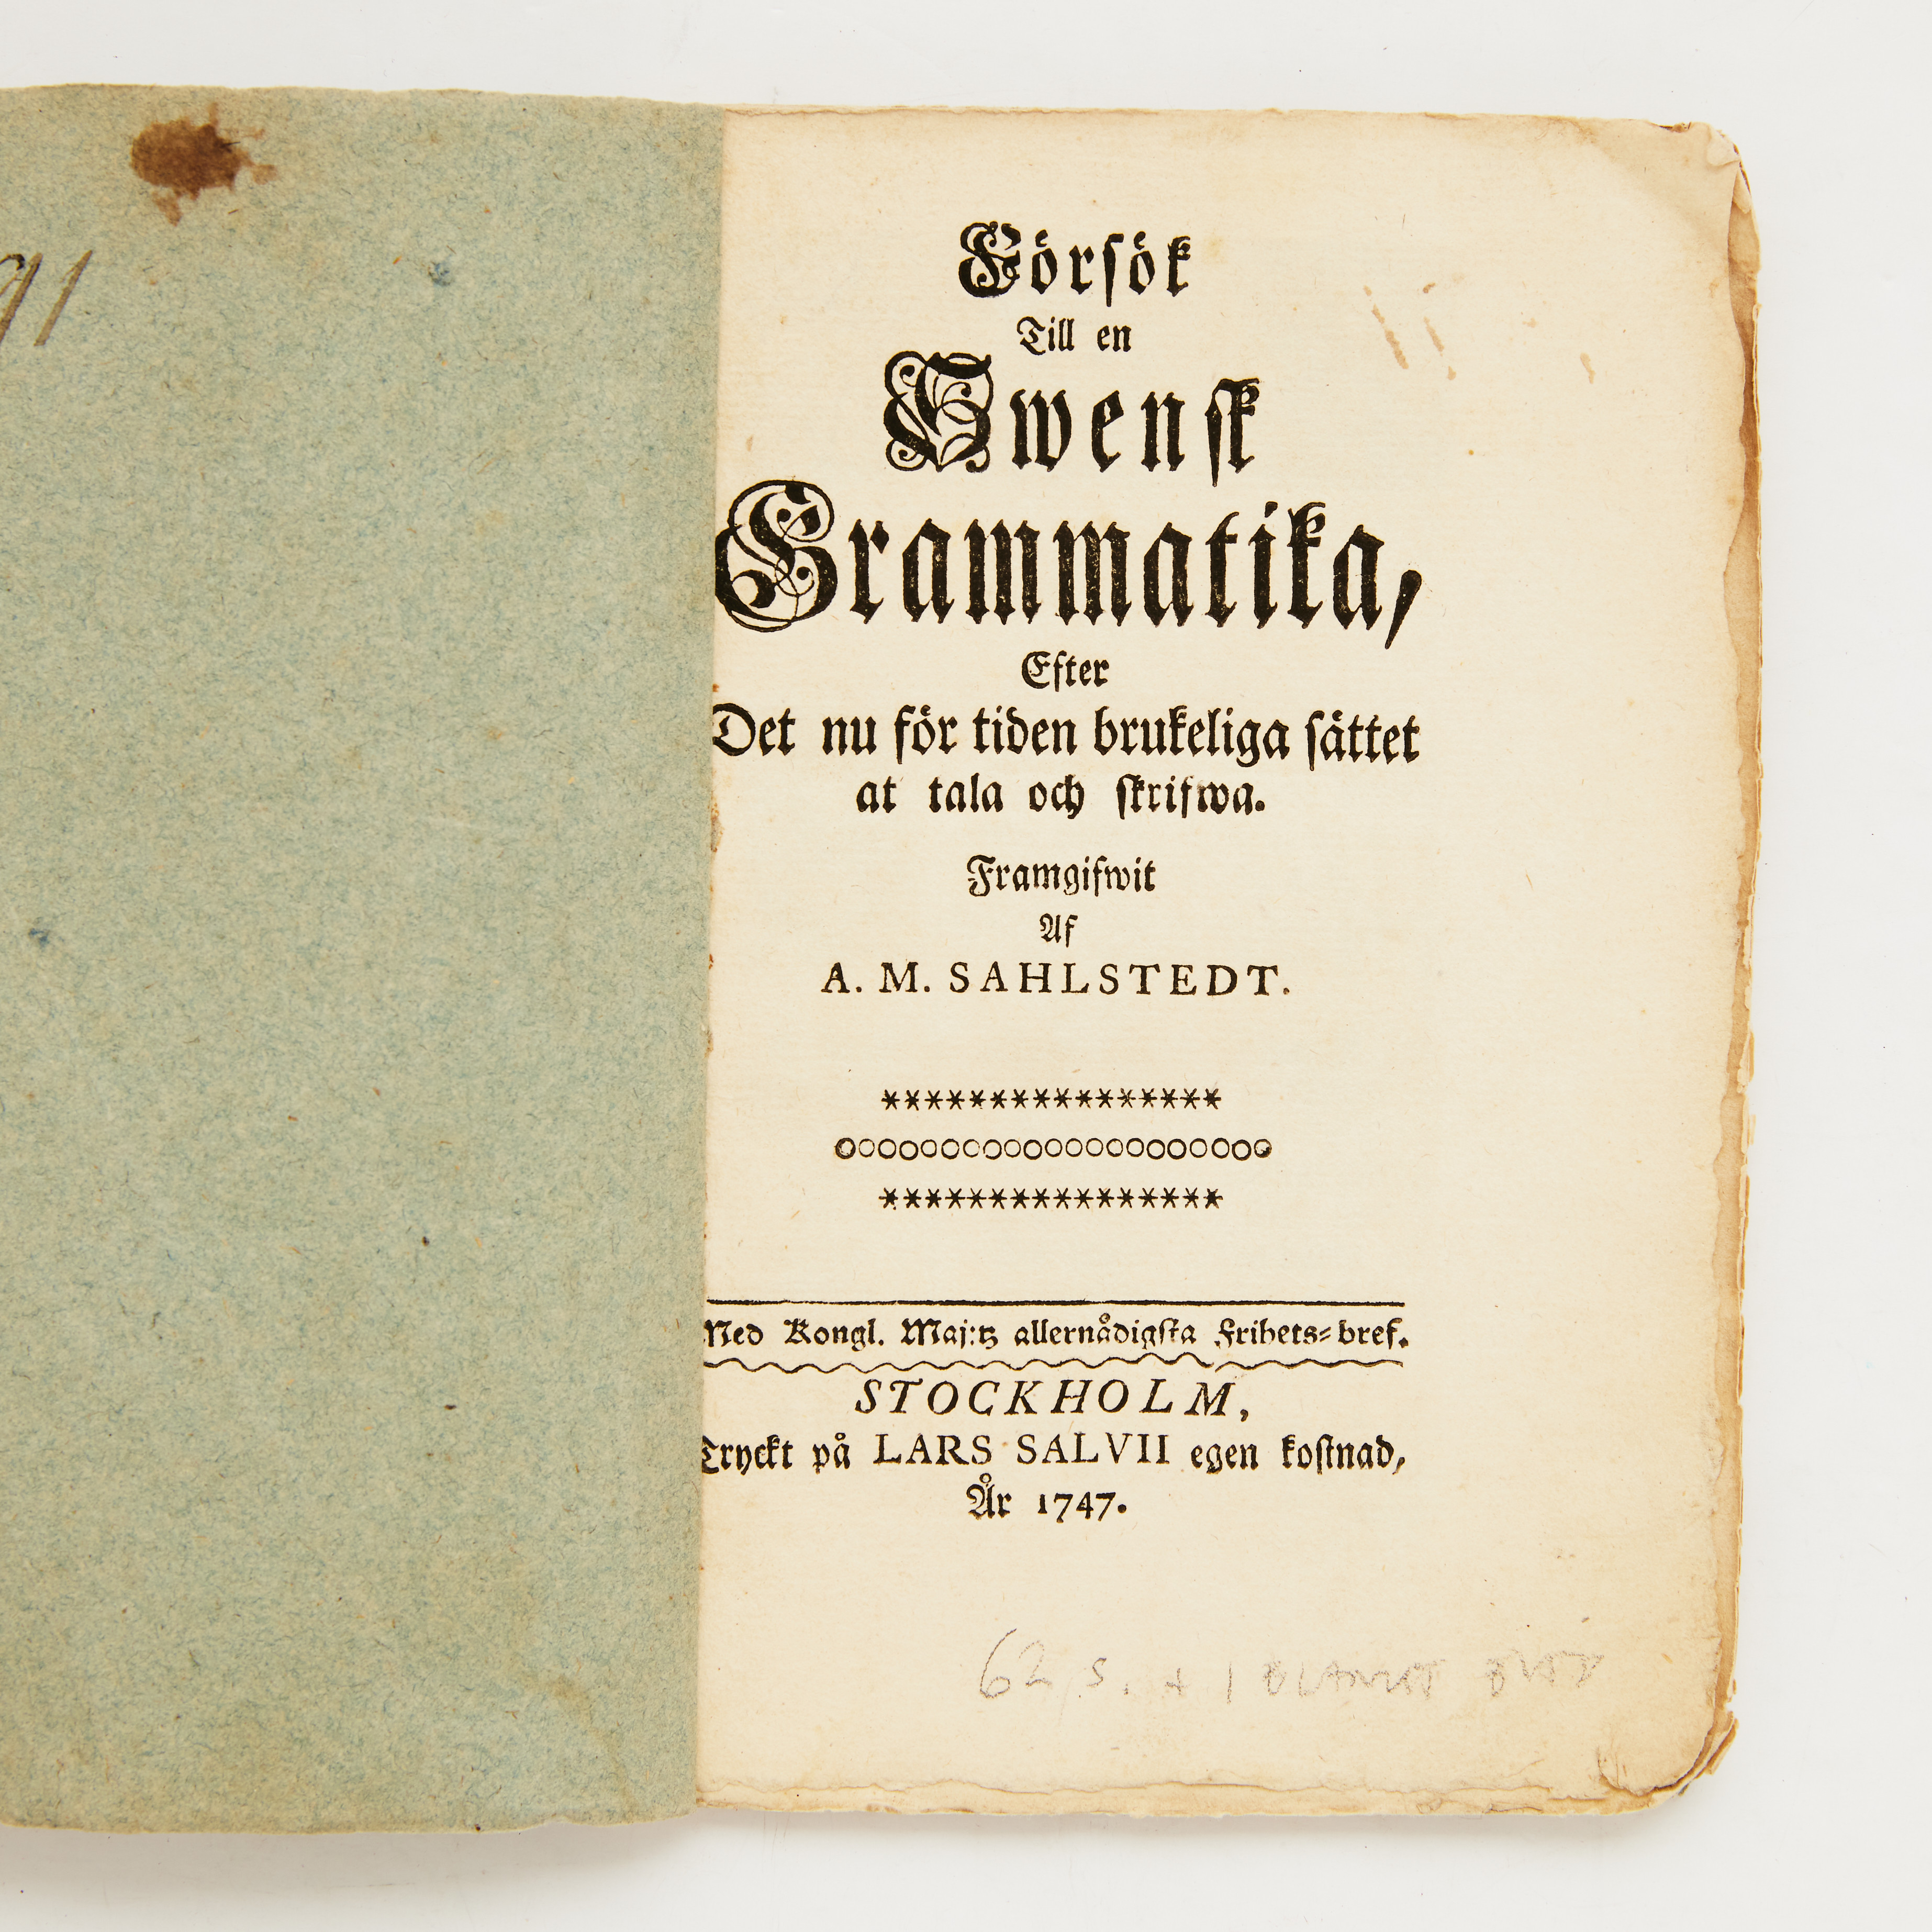 91
Försök
Till en
Swensk
Grammatika,
Efter
Det nu för tiden brukeliga sättet
at tala och skrifwa.
Framgifwit
Af
A. M. SAHLSTEDT.
****************
ooooooooooooooooooooo
****************
Med Kongl. Maj:tz allernådigsta Frihets=bref.
STOCKHOLM,
Tryckt på LARS SALVII egen kostnad,
År 1747.
62 s. + 1 BLANKT BLAD